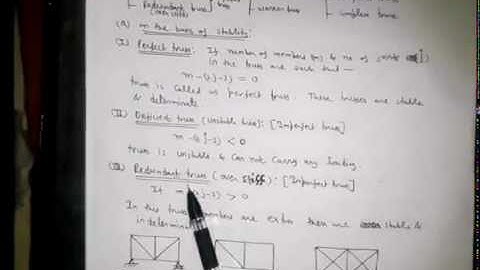 Redundant truss
(over stiff)
warren truss
complex truss
(A) on the basis of stability:
(I) Perfect truss: If number of members (m) & no of joints (j)
in the truss are such that —
m-(2j-3) = 0
truss is called as perfect truss. These trusses are stable
& determinate
(II) Deficient truss (Unstable truss): [Imperfect truss]
m-(2j-3) < 0
truss is unstable & can not carry any loading.
(III) Redundant truss (over stiff): [Imperfect truss]
If j-3) > 0
In this truss members are extra then are stable &
indetermin